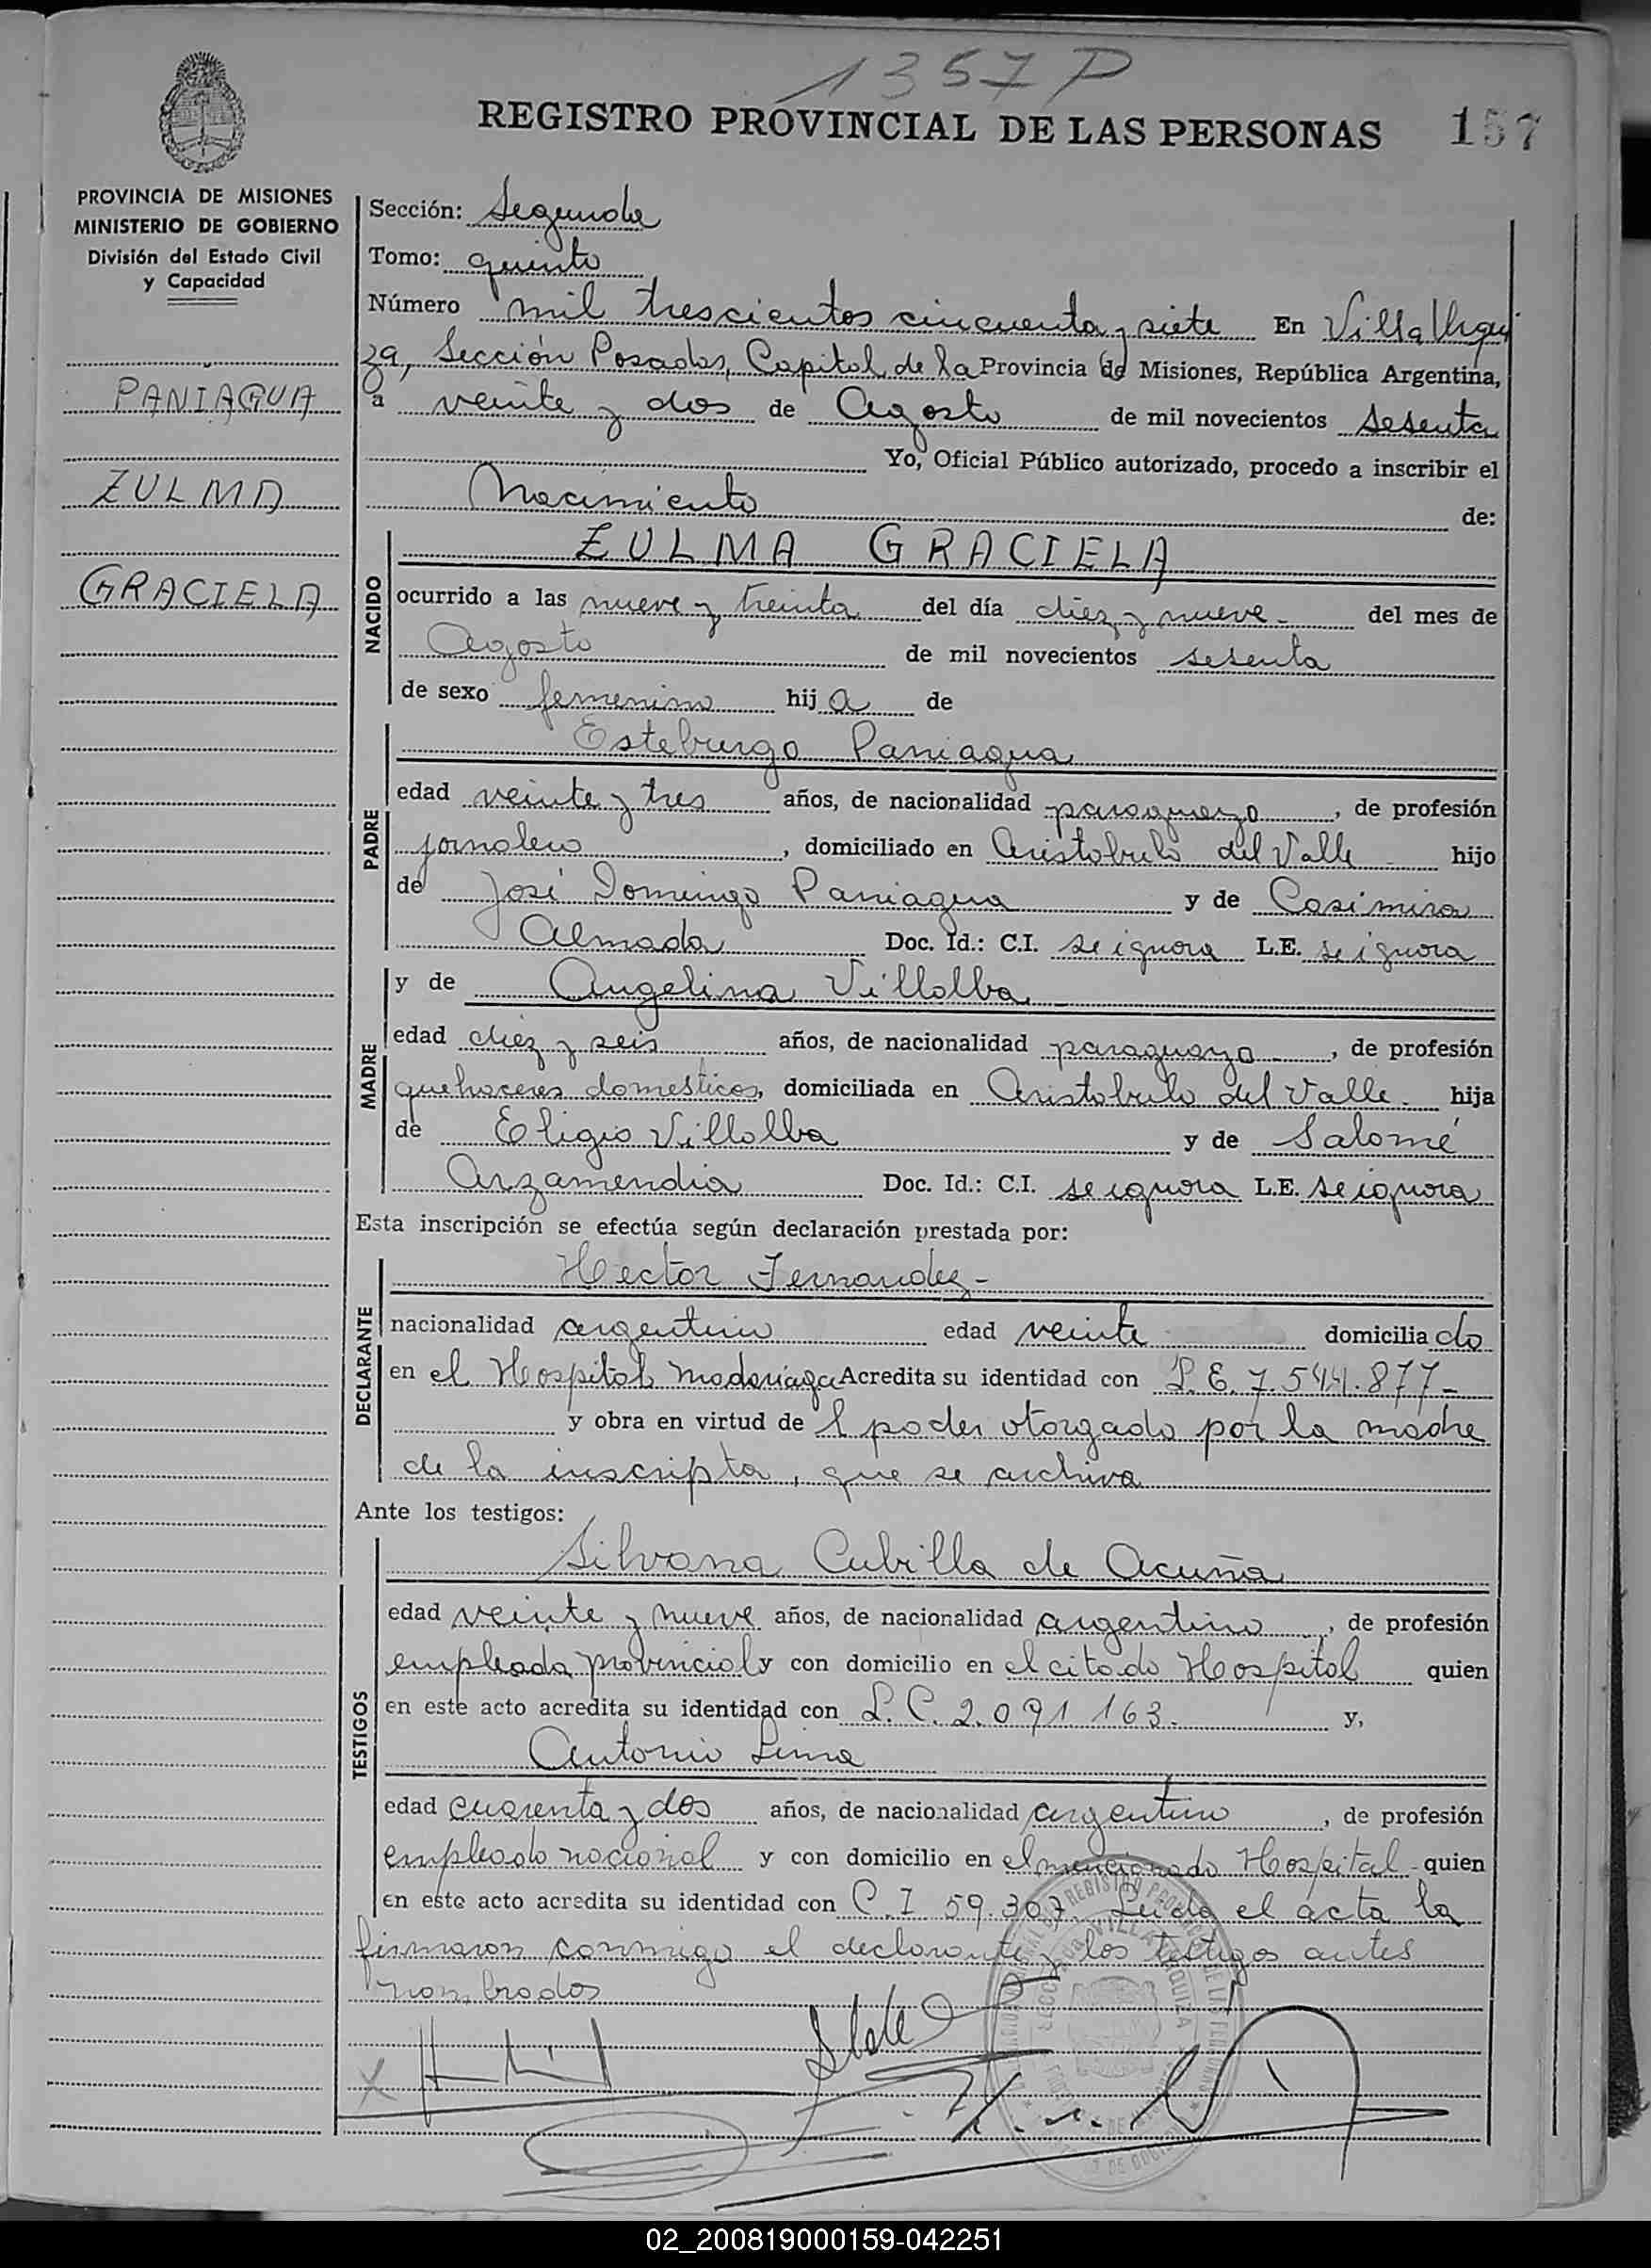 1357 P
REGISTRO PROVINCIAL DE LAS PERSONAS 157
PROVINCIA DE MISIONES
MINISTERIO DE GOBIERNO
División del Estado Civil
y Capacidad
PANIAGUA
ZULMA
GRACIELA
Sección: Segunda
Tomo: quinto
Número mil trescientos cincuenta y siete En Villa Urqui
za, Sección Posadas, Capital de la Provincia de Misiones, República Argentina,
a veinte y dos de Agosto de mil novecientos sesenta
Yo, Oficial Público autorizado, procedo a inscribir el
Nacimiento de:
NACIDO
ZULMA GRACIELA
ocurrido a las nueve y treinta del día diez y nueve - del mes de
Agosto de mil novecientos sesenta
de sexo femenino hija de
PADRE
Esteburgo Paniagua
edad veinte y tres años, de nacionalidad paraguayo, de profesión
jornalero, domiciliado en Aristobulo del Valle hijo
de José Domingo Paniagua y de Casimira
Almada Doc. Id.: C.I. se ignora L.E. se ignora
MADRE
y de Angelina Villalba
edad diez y seis años, de nacionalidad paraguaya -, de profesión
quehaceres domesticos, domiciliada en Aristobulo del Valle - hija
de Eligio Villalba y de Salomé
Arzamendia Doc. Id.: C.I. se ignora L.E. se ignora
Esta inscripción se efectúa según declaración prestada por:
DECLARANTE
Hector Fernandez -
nacionalidad argentino edad veinte domiciliado
en el Hospital Madariaga Acredita su identidad con L.E. 7.544.877-
y obra en virtud del poder otorgado por la madre
de la inscripta, que se archiva
Ante los testigos:
TESTIGOS
Silvana Cubilla de Acuña
edad veinte y nueve años, de nacionalidad argentino, de profesión
empleada provincial y con domicilio en el citado Hospital quien
en este acto acredita su identidad con L.C. 2.091.163.- y,
Antonio Lima
edad cuarenta y dos años, de nacionalidad argentino, de profesión
empleado nacional y con domicilio en el mencionado Hospital - quien
en este acto acredita su identidad con C.I 59.307. Leida el acta la
firmaron conmigo el declarante y los testigos antes
nombrados
02_200819000159-042251